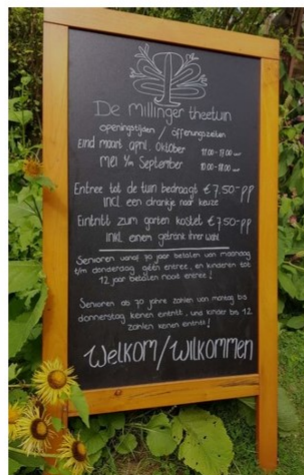 De Millinger theetuin
openingstijden / öffnungszeiten
Eind maart, april, oktober 11:00-17:00 uur
Mei t/m September 10:00-18:00 uur
Entree tot de tuin bedraagt € 7,50-pp
incl een drankje naar keuze
Eintritt zum garten kostet € 7,50-pp
inkl. einem getränk ihrer wahl
Senioren vanaf 70 jaar betalen van maandag
t/m donderdag géén entree, en kinderen tot
12 jaar betalen nooit entree!
Senioren ab 70 jahre zahlen von montag bis
donnerstag keinen eintritt, und kinder bis 12
zahlen keinen eintritt!
Welkom/Wilkommen